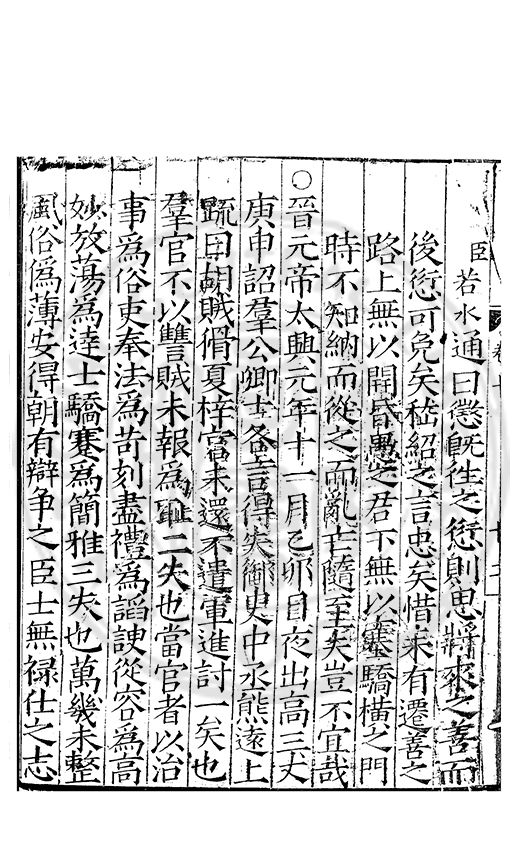 臣若水通曰懲既往之愆則思將來之善而
後愆可免矣嵇紹之言忠矣惜未有遷善之
路上無以開昏愚之君下無以塞驕橫之門
時不知納而從之而亂亡隨至矣豈不宜哉
○晉元帝太興元年十一月乙卯日夜出高三丈
庚申詔羣公卿士各言得失御史中丞熊遠上
疏曰胡賊猾夏梓宮未還不遣軍進討一矣也
羣官不以讐賊未報爲恥二失也當官者以治
事爲俗吏奉法爲苛刻盡禮爲謟諛從容爲高
妙放蕩爲達士驕蹇爲簡雅三失也萬幾未整
風俗僞薄安得朝有辯爭之臣士無禄仕之志